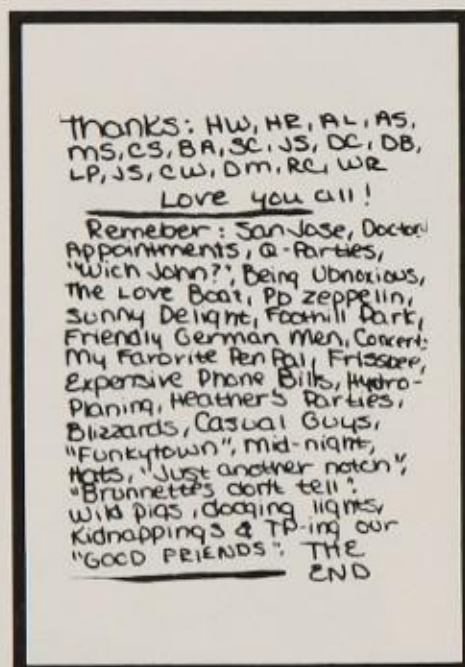 Thanks: HW, HR, AL, AS,
MS, CS, BA, SC, JS, DC, DB,
LP, JS, CW, DM, RC, WR
Love you all!
Remeber: San Jose, Doctor
Appointments, Q-Parties,
"Wich John?", Being Ubnoxious,
The Love Boat, Pb zeppelin,
Sunny Delight, Foothill Park,
Friendly German Men, Concert:
My Favorite Pen Pal, Frissbee,
Expensive Phone Bills, Hydro-
Planing, Heather's Parties,
Blizzards, Casual Guys,
"Funkytown", Mid-night,
Hats, "Just another notch",
"Brunnette's don't tell".
Wild pigs, dodging lights,
Kidnappings & TP-ing our
"GOOD FRIENDS". THE
END